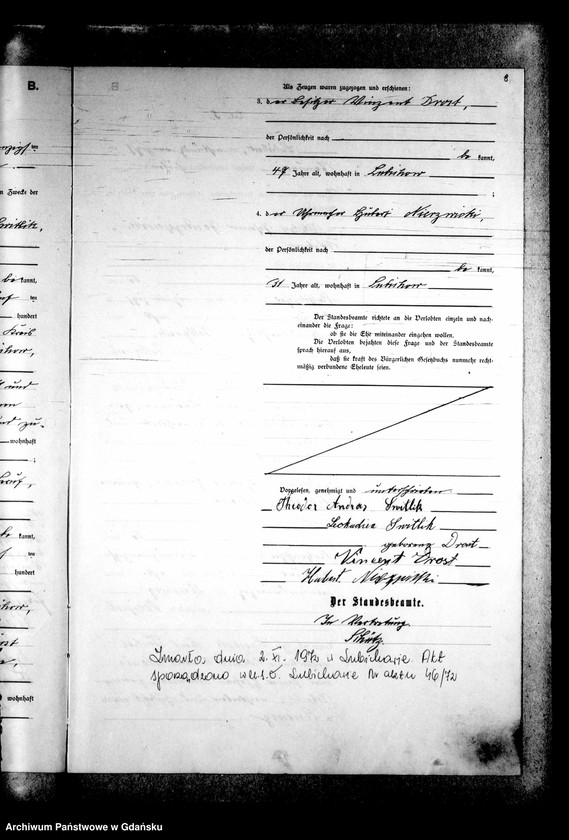 B.
8
Als Zeugen waren zugezogen und erschienen:
3. der Besitzer Vinzent Drost,
der Persönlichkeit nach
be kannt,
47 Jahre alt, wohnhaft in Lubichow
;
4. der Hubert
der Persönlichkeit nach
be kannt,
31 Jahre alt, wohnhaft in Lubichow
Der Standesbeamte richtete an die Verlobten einzeln und nach-
einander die Frage:
ob sie die Ehe miteinander eingehen wollen.
Die Verlobten bejahten diese Frage und der Standesbeamte
sprach hierauf aus,
daß sie kraft des Bürgerlichen Gesetzbuchs nunmehr recht-
mäßig verbundene Eheleute seien.
Vorgelesen, genehmigt und unterschrieben
Theodor Andras Smitlik
Leokadia Smitlik
geborene Drost
Vincent Drost
Hubert
Der Standesbeamte.
In Vertretung
Zmarła dnia 2. XI. 1972 w Lubichowie Akt
sporządzono w U.S.C. Lubichowo Nr aktu 46/72
ten
n Zwecke der
be kannt,
ten
hundert
wohnhaft
;
be kannt,
ten
hundert
wohnhaft
Archiwum Państwowe w Gdańsku